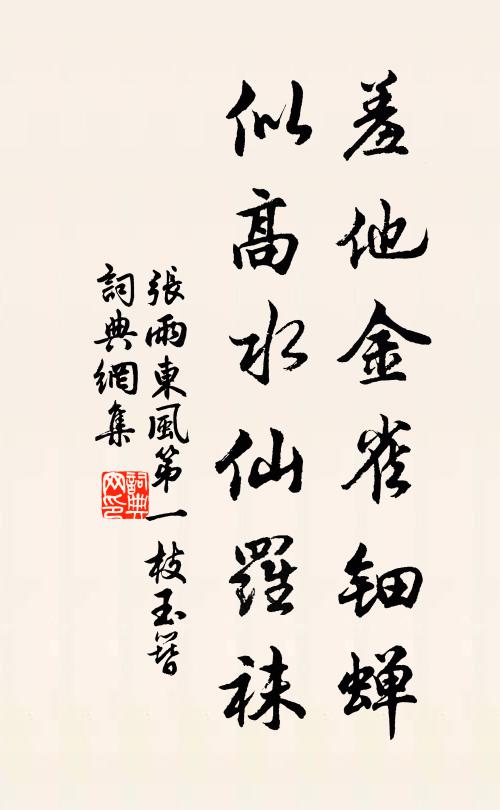 羞他金雀钿蝉
似高水仙羅袜
張雨東風第一枝玉簪
詞典網集
詞典网印